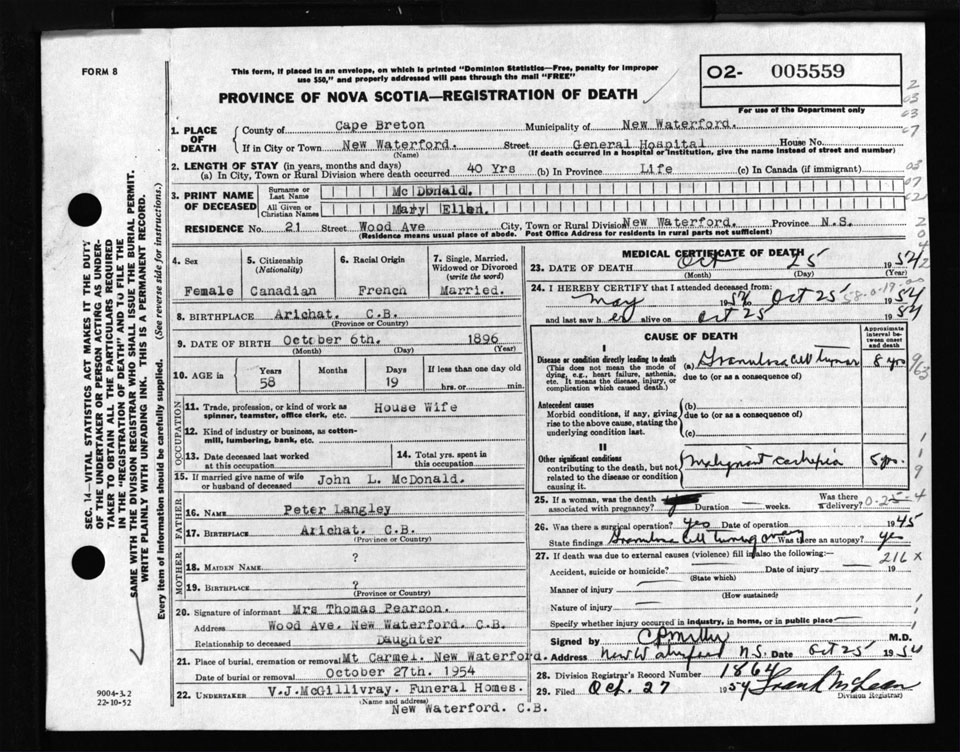 FORM 8
This form, if placed in an envelope, on which is printed "Dominion Statistics—Free, penalty for improper
use $50," and properly addressed will pass through the mail "FREE"
O2- 005559
For use of the Department only
PROVINCE OF NOVA SCOTIA—REGISTRATION OF DEATH
1. PLACE OF DEATH
County of Cape Breton Municipality of New Waterford.
If in City or Town New Waterford. Street General Hospital House No.
(Name) (If death occurred in a hospital or institution, give the name instead of street and number)
2. LENGTH OF STAY (in years, months and days)
(a) In City, Town or Rural Division where death occurred 40 Yrs (b) In Province Life (c) In Canada (if immigrant)
3. PRINT NAME OF DECEASED
Surname or Last Name Mc Donald.
All Given or Christian Names Mary Ellen.
RESIDENCE No. 21 Street Wood Ave City, Town or Rural Division New Waterford. Province N.S.
(Residence means usual place of abode. Post Office Address for residents in rural parts not sufficient)
4. Sex Female
5. Citizenship (Nationality) Canadian
6. Racial Origin French
7. Single, Married, Widowed or Divorced (write the word) Married.
8. BIRTHPLACE Arichat. C.B.
(Province or Country)
9. DATE OF BIRTH October 6th. 1896
(Month) (Day) (Year)
10. AGE in Years 58 Months Days 19 If less than one day old hrs. or min.
OCCUPATION
11. Trade, profession, or kind of work as spinner, teamster, office clerk, etc. House Wife
12. Kind of industry or business, as cotton-mill, lumbering, bank, etc.
13. Date deceased last worked at this occupation
14. Total yrs. spent in this occupation
15. If married give name of wife or husband of deceased John L. McDonald.
FATHER
16. Name Peter Langley
17. Birthplace Arichat. C.B.
(Province or Country)
MOTHER
18. MAIDEN NAME ?
19. BIRTHPLACE ?
(Province or Country)
20. Signature of informant Mrs Thomas Pearson.
Address Wood Ave. New Waterford. C.B.
Relationship to deceased Daughter
21. Place of burial, cremation or removal Mt Carmel. New Waterford.
Date of burial or removal October 27th. 1954
22. UNDERTAKER V.J.McGillivray. Funeral Homes.
(Name and address)
New Waterford. C.B.
MEDICAL CERTIFICATE OF DEATH
23. DATE OF DEATH Oct 25 1954
(Month) (Day) (Year)
24. I HEREBY CERTIFY that I attended deceased from:
May 1954 Oct 25 1954
and last saw her alive on Oct 25 1954
CAUSE OF DEATH
Approximate interval between onset and death
I
Disease or condition directly leading to death
(This does not mean the mode of dying, e.g., heart failure, asthenia, etc. It means the disease, injury, or complication which caused death.)
(a) Granulosa cell tumor 8 yrs
due to (or as a consequence of)
Antecedent causes
Morbid conditions, if any, giving rise to the above cause, stating the underlying condition last.
(b)
due to (or as a consequence of)
(c)
II
Other significant conditions
contributing to the death, but not related to the disease or condition causing it.
Malignant cachexia
25. If a woman, was the death associated with pregnancy? Duration weeks. Was there a delivery?
26. Was there a surgical operation? yes Date of operation 1945
State findings Granulosa cell tumor ovary Was there an autopsy? yes
27. If death was due to external causes (violence) fill in also the following:—
Accident, suicide or homicide? Date of injury 19
(State which)
Manner of injury
(How sustained)
Nature of injury
Specify whether injury occurred in industry, in home, or in public place
Signed by M.D.
Address New Waterford N.S. Date Oct 25 1954
28. Division Registrar's Record Number 1864
29. Filed Oct. 27 1954 Frank McLean
(Division Registrar)
SEC. 14—VITAL STATISTICS ACT MAKES IT THE DUTY
OF THE UNDERTAKER OR PERSON ACTING AS UNDER-
TAKER TO OBTAIN ALL THE PARTICULARS REQUIRED
IN THE "REGISTRATION OF DEATH" AND TO FILE THE
SAME WITH THE DIVISION REGISTRAR WHO SHALL ISSUE THE BURIAL PERMIT.
WRITE PLAINLY WITH UNFADING INK. THIS IS A PERMANENT RECORD.
Every item of information should be carefully supplied. (See reverse side for instructions.)
9004-3.2
22-10-52
216 X